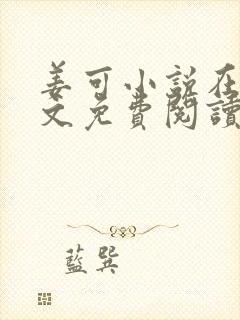 姜可小說在
文免費閱讀
藍巽